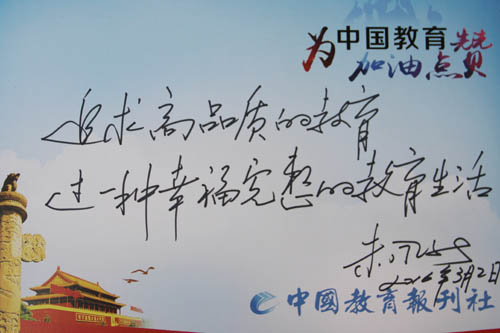 为中国教育
加油点赞
追求高品质的教育
过一种幸福完整的教育生活
朱永新
2016年3月2日
中國教育報刊社